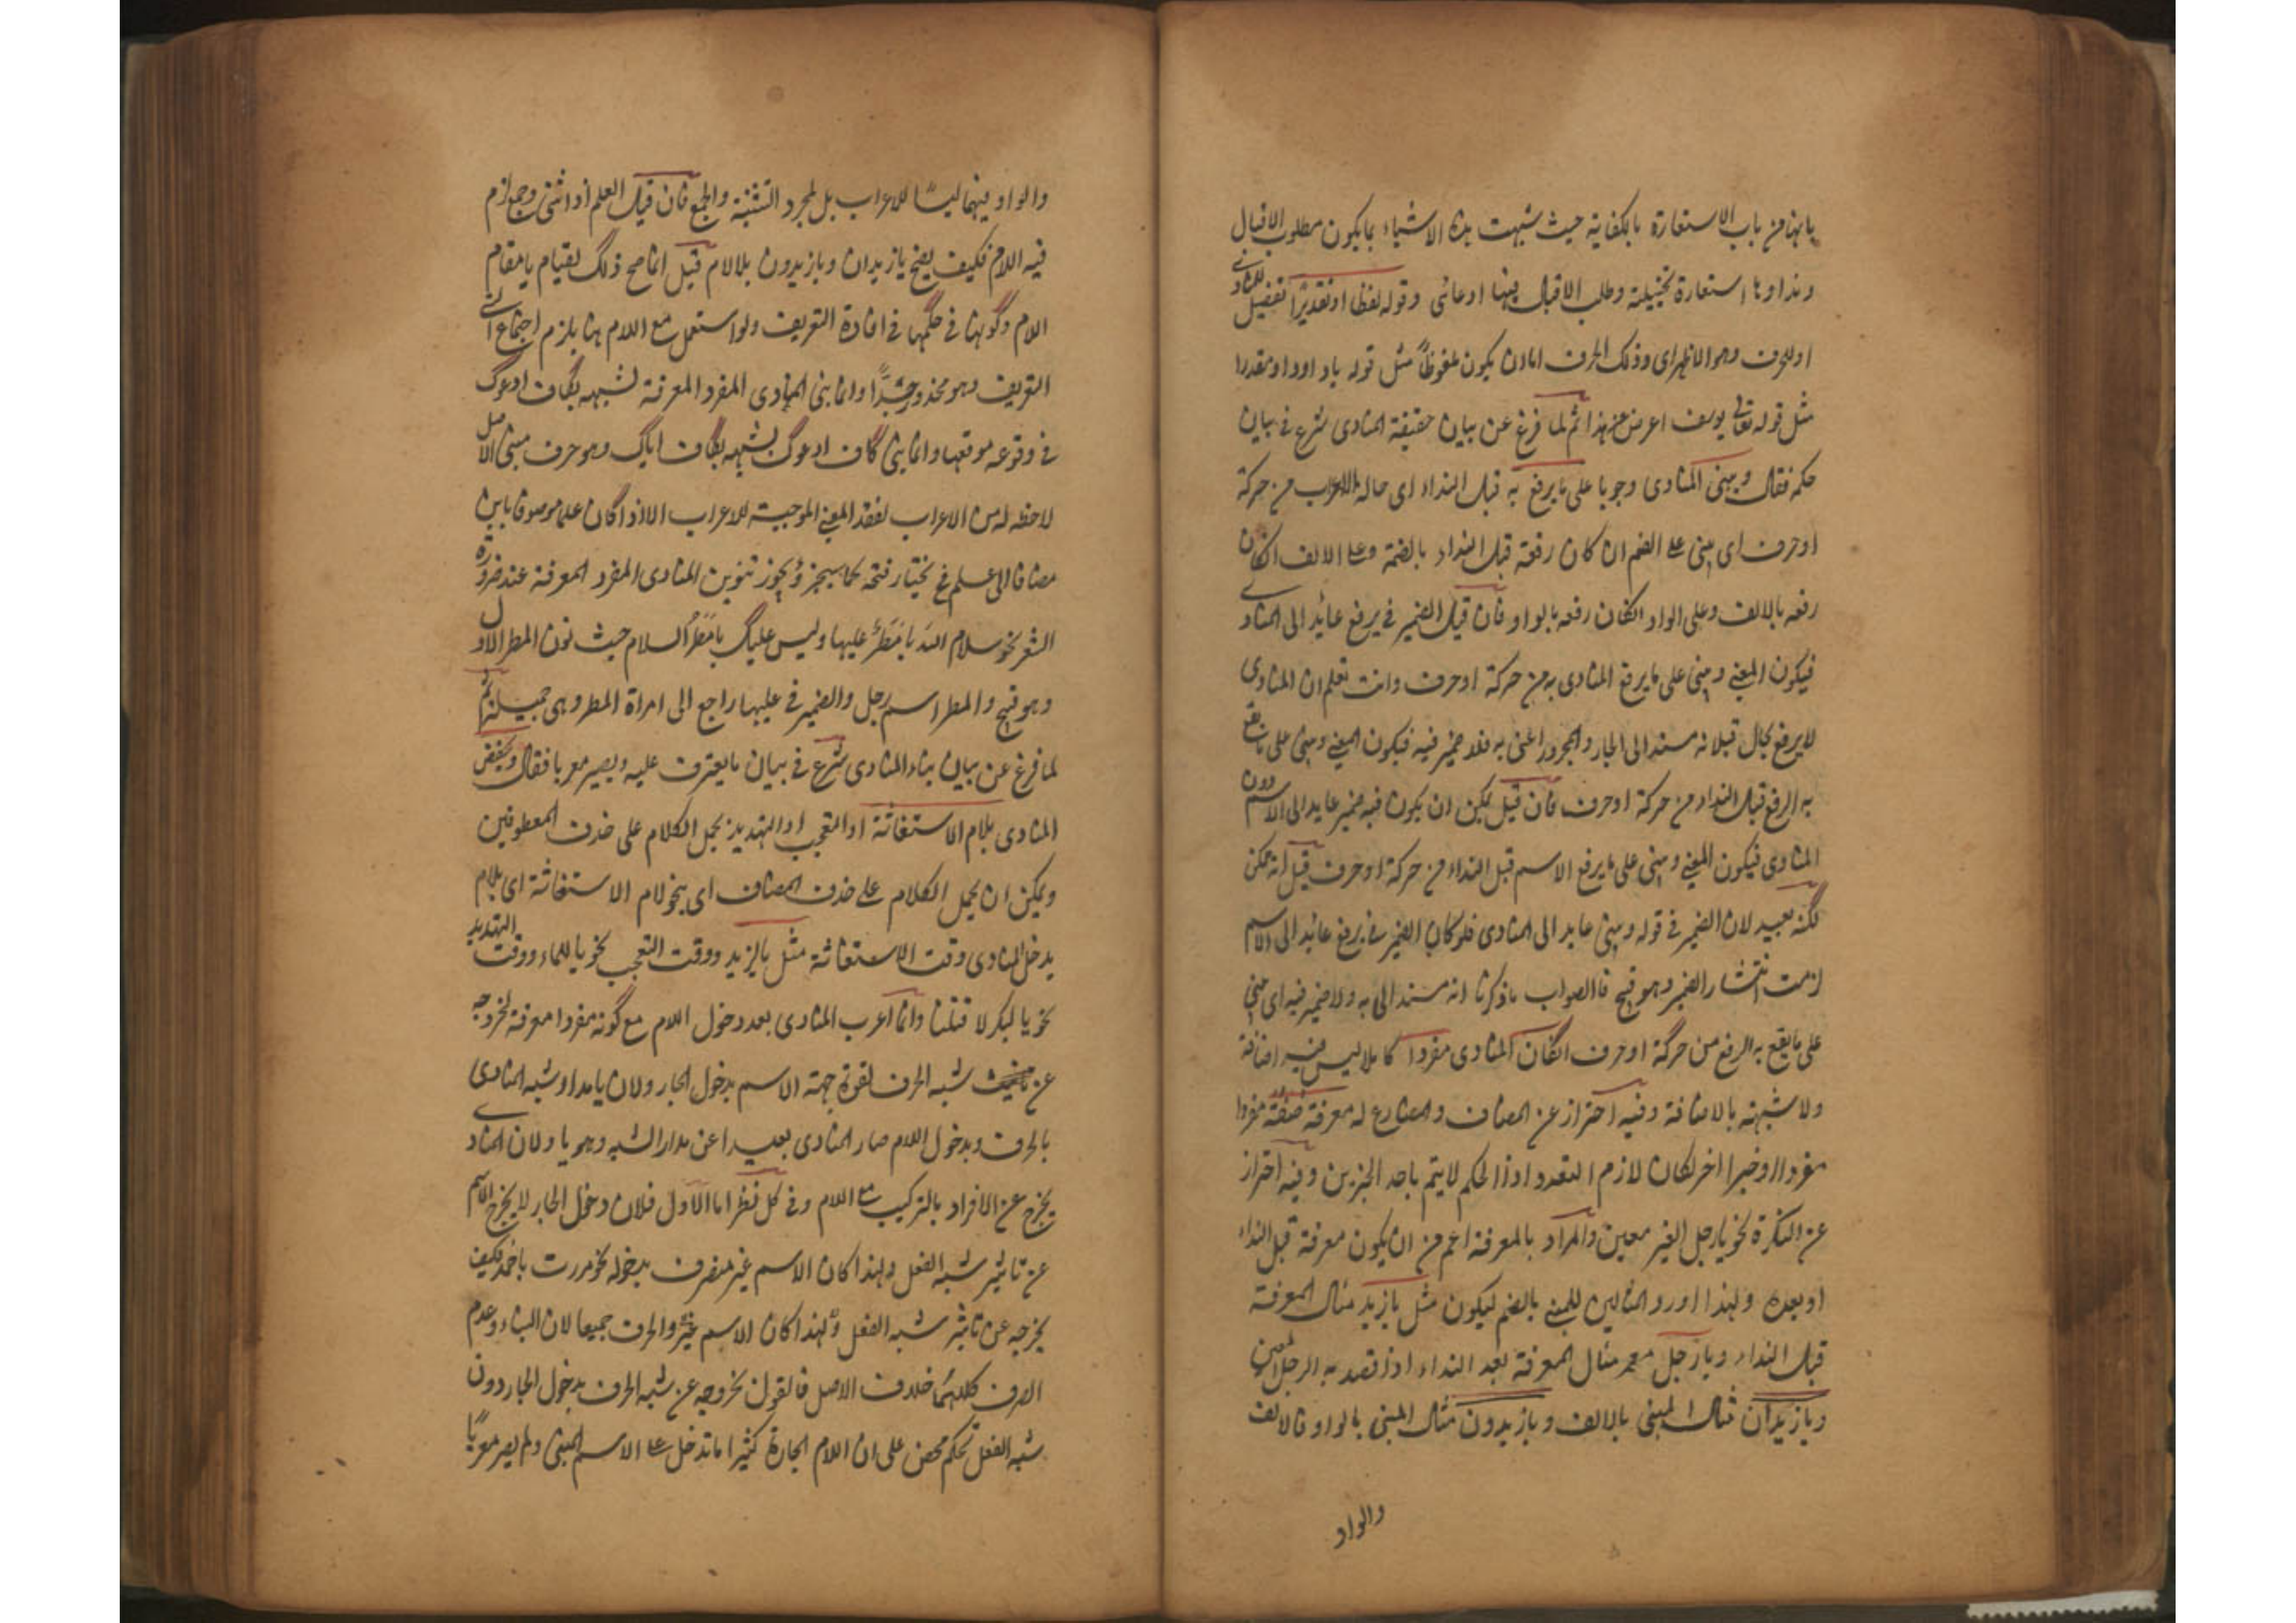 بابها من باب الاستعارة بالكناية حيث شبهت بذه الاشياء بما يكون مطلوب الاقبال
ونداوها استعارة تخييلية وطلب الاقبال بها ادعائى وقوله لفظا او تقديرًا تفصيل للمنادى
او للحرف وهو الاظهر اى وذلك الحرف اما ان يكون ملفوظًا مثل قوله ياداود او مقدرا
مثل قوله تعالى يوسف اعرض عن هذا ثم لما فرغ عن بيان حقيقة المنادى شرع فى بيان
حكمه فقال ويبنى المنادى وجوبا على ما يرفع به قبل النداء اى حالة الاعراب من حركة
او حرف اى يبنى على الضم ان كان رفعه قبل النداء بالضمة وعلى الالف انكان
رفعه بالالف وعلى الواو انكان رفعه بالواو فان قيل الضمير فى يرفع عائد الى المنادى
فيكون المعنى ويبنى على ما يرفع المنادى به من حركة او حرف وانت تعلم ان المنادى
لا يرفع بحال قبل انه مسند الى الجار والمجرور اعنى به فلا ضمير فيه فيكون المعنى ويبنى على ما يقع
به الرفع قبل النداء من حركة او حرف فان قيل يمكن ان يكون فيه ضمير عايد الى الاسم دون
المنادى فيكون المعنى ويبنى على ما يرفع الاسم قبل النداء من حركة او حرف قيل انه يمكن
لكنه بعيد لان الضمير فى قوله ويبنى عايد الى المنادى فلو كان الضمير فى يرفع عائد الى الاسم
لزمت انتشار الضمير وهو قبيح فالصواب ما ذكرنا انه مسند الى به ولا ضمير فيه اى يبنى
على ما يقع به الرفع من حركة او حرف انكان المنادى مفردا كاملا ليس فيه اضافة
ولا شبهته بالاضافة وفيه احتراز عن المضاف والمضارع له معرفة صفة مفردا
مفردا او خبرا اخر لكان لازم التعدد اذا الحكم لا يتم باحد الجزئين وفيه احتراز
عن النكرة نحو يا رجل الغير معين والمراد بالمعرفة اعم من ان يكون معرفة قبل النداء
او بعده ولهذا اورد المثالين للمبنى بالضم ليكون مثل يا زيد مثال المعرفة
قبل النداء ويا رجل معه مثال المعرفة بعد النداء اذا قصد به الرجل المعين
ويا زيدان مثال المبنى بالالف ويا زيدون مثال المبنى بالواو فالالف
والواو
والواو فيهما ليسا للاعراب بل لمجرد التثنية والجمع فان قيل العلم اذا ثنى وجمع لزم
فيه اللام فكيف يصح يا زيدان ويا زيدون بلا لام قيل انما صح ذلك لقيام يا مقام
اللام وكونها فى حكمها فى افادة التعريف ولو استعمل مع اللام هنا يلزم اجتماع التى
التعريف وهو محذور جدًّا وانما بنى المنادى المفرد المعرفة لشبهه بكاف ادعوك
فى وقوعه موقعها وانما بنى كاف ادعوك لشبهه بكاف اياك وهو حرف مبنى الاصل
لاحظ له من الاعراب لفقد المعنى الموجبة للاعراب الا اذا كان علما موصوفا بابن
مضافا الى علم فح يختار فتحه كما سيجئ ويجوز تنوين المنادى المفرد المعرفة عند ضرورة
الشعر نحو سلام الله يا مطر عليها وليس عليك يا مطر السلام حيث نون المطر الاول
وهو قبيح والمطر اسم رجل والضمير فى عليها راجع الى امراة المطر وهى جميلة ثم
لما فرغ عن بيان بناء المنادى شرع فى بيان ما يعترف عليه ويصير معربا فقال ويخفض
المنادى بلام الاستغاثة او التعجب او التهديد يحمل الكلام على حذف المعطوفين
ويمكن ان يحمل الكلام على حذف المضاف اى بنحو لام الاستغاثة اى بلام
يدخل المنادى وقت الاستغاثة مثل يا لزيد ووقت التعجب نحو يا للماء ووقت التهديد
نحو يا لبكر لا قتلنا وانما اعرب المنادى بعد دخول اللام مع كونه مفردا معرفة لخروجه
عن شبه الحرف لقوة جهة الاسم بدخول الجار ولان يا مدار شبه المنادى
بالحرف وبدخول اللام صار المنادى بعيدا عن مدار الشبه وهو يا ولان المنادى
يخرج عن الافراد بالتركيب مع اللام وفى كل نظر اما الاول فلان دخول الجار لا يخرج الاسم
عن تاثير شبه الفعل ولهذا كان الاسم غير منصرف بدخوله نحو مررت باحمد فكيف
يخرجه عن تاثير شبه الفعل ولهذا كان الاسم غير والحرف جميعا لان البناء وعدم
الصرف كلاهما خلاف الاصل فالقول بخروجه عن شبه الحرف بدخول الجار دون
شبه الفعل تحكم محض على ان اللام الجارة كثيرا ما تدخل على الاسم المبنى ولم يصر معربًا